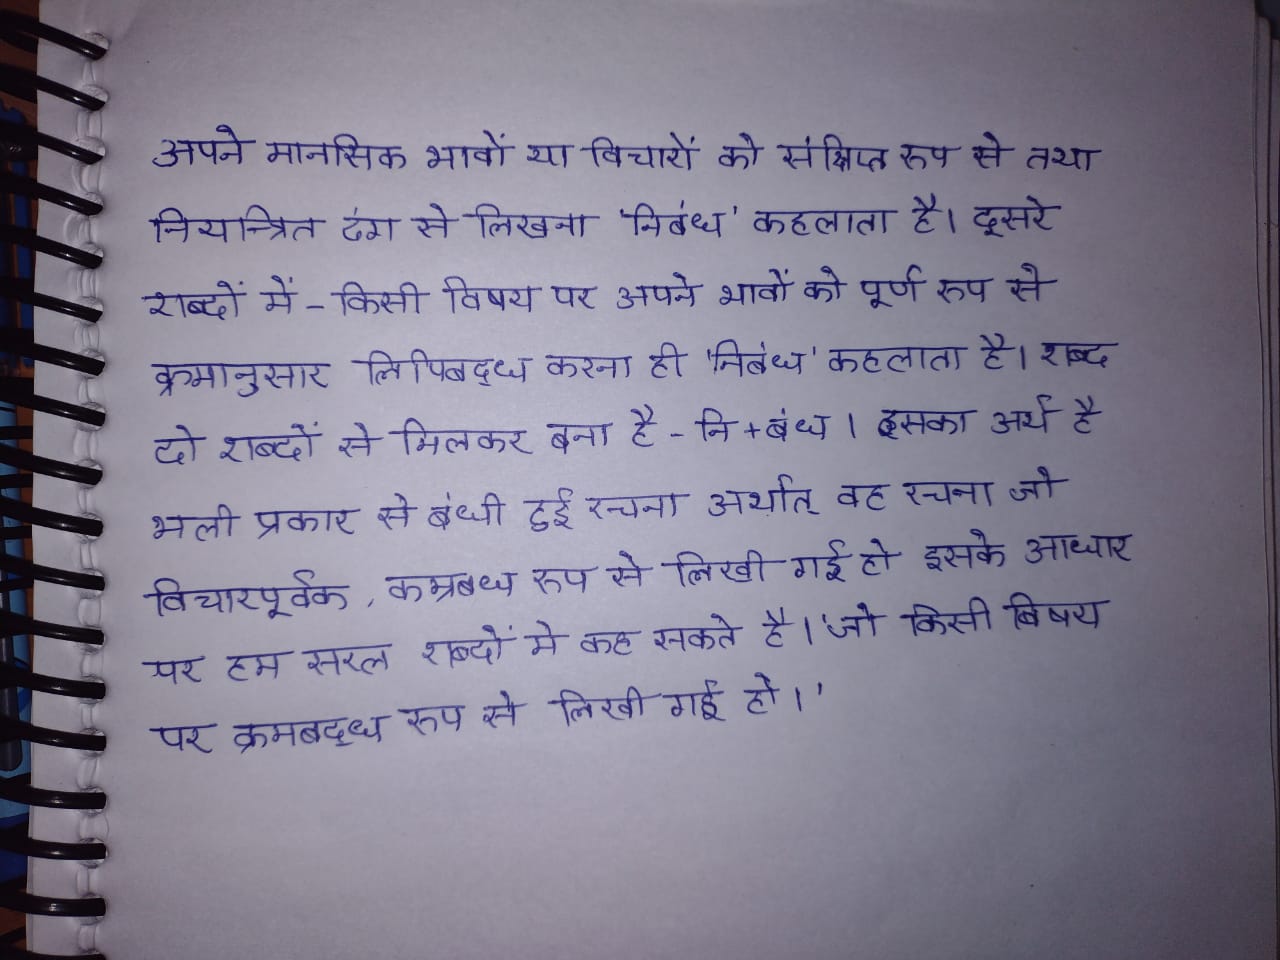 अपने मानसिक भावों या विचारों को संक्षिप्त रुप से तथा
नियन्त्रित ढंग से लिखना 'निबंध' कहलाता है। दूसरे
शब्दों में - किसी विषय पर अपने भावों को पूर्ण रुप से
क्रमानुसार लिपिबद्ध करना ही 'निबंध' कहलाता है। शब्द
दो शब्दों से मिलकर बना है - नि + बंध । इसका अर्थ है
भली प्रकार से बंधी हुई रचना अर्थात् वह रचना जो
विचारपूर्वक , कम्रबध रुप से लिखी गई हो इसके आधार
पर हम सरल शब्दों मे कह सकते है। 'जो किसी बिषय
पर क्रमबद्ध रुप से लिखी गई हो।'